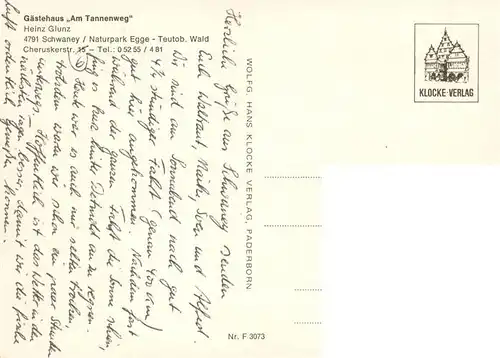 Gästehaus „Am Tannenweg"
Heinz Glunz
4791 Schwaney / Naturpark Egge - Teutob. Wald
Cheruskerstr. 15 - Tel.: 0 52 55 / 4 81
KLOCKE-VERLAG
WOLFG. HANS KLOCKE VERLAG, PADERBORN
Nr. F 3073
Herzliche Grüße aus Schwaney senden
Euch Waltraut, und Alfred.
Wir sind am Sonnabend nach gut
4 ½ stündiger Fahrt (genau 400 km)
gut hier angekommen. Nachdem fast
während der ganzen Fahrt die Sonne schien,
fing es kurz hinter Detmold an zu regnen.
Heute war es auch nur selten trocken,
trotzdem waren wir schon ein paar Stunden
unterwegs. Hoffentlich ist das Wetter in den
nächsten Tagen besser, damit wir die frische
Luft ordentlich genießen können.